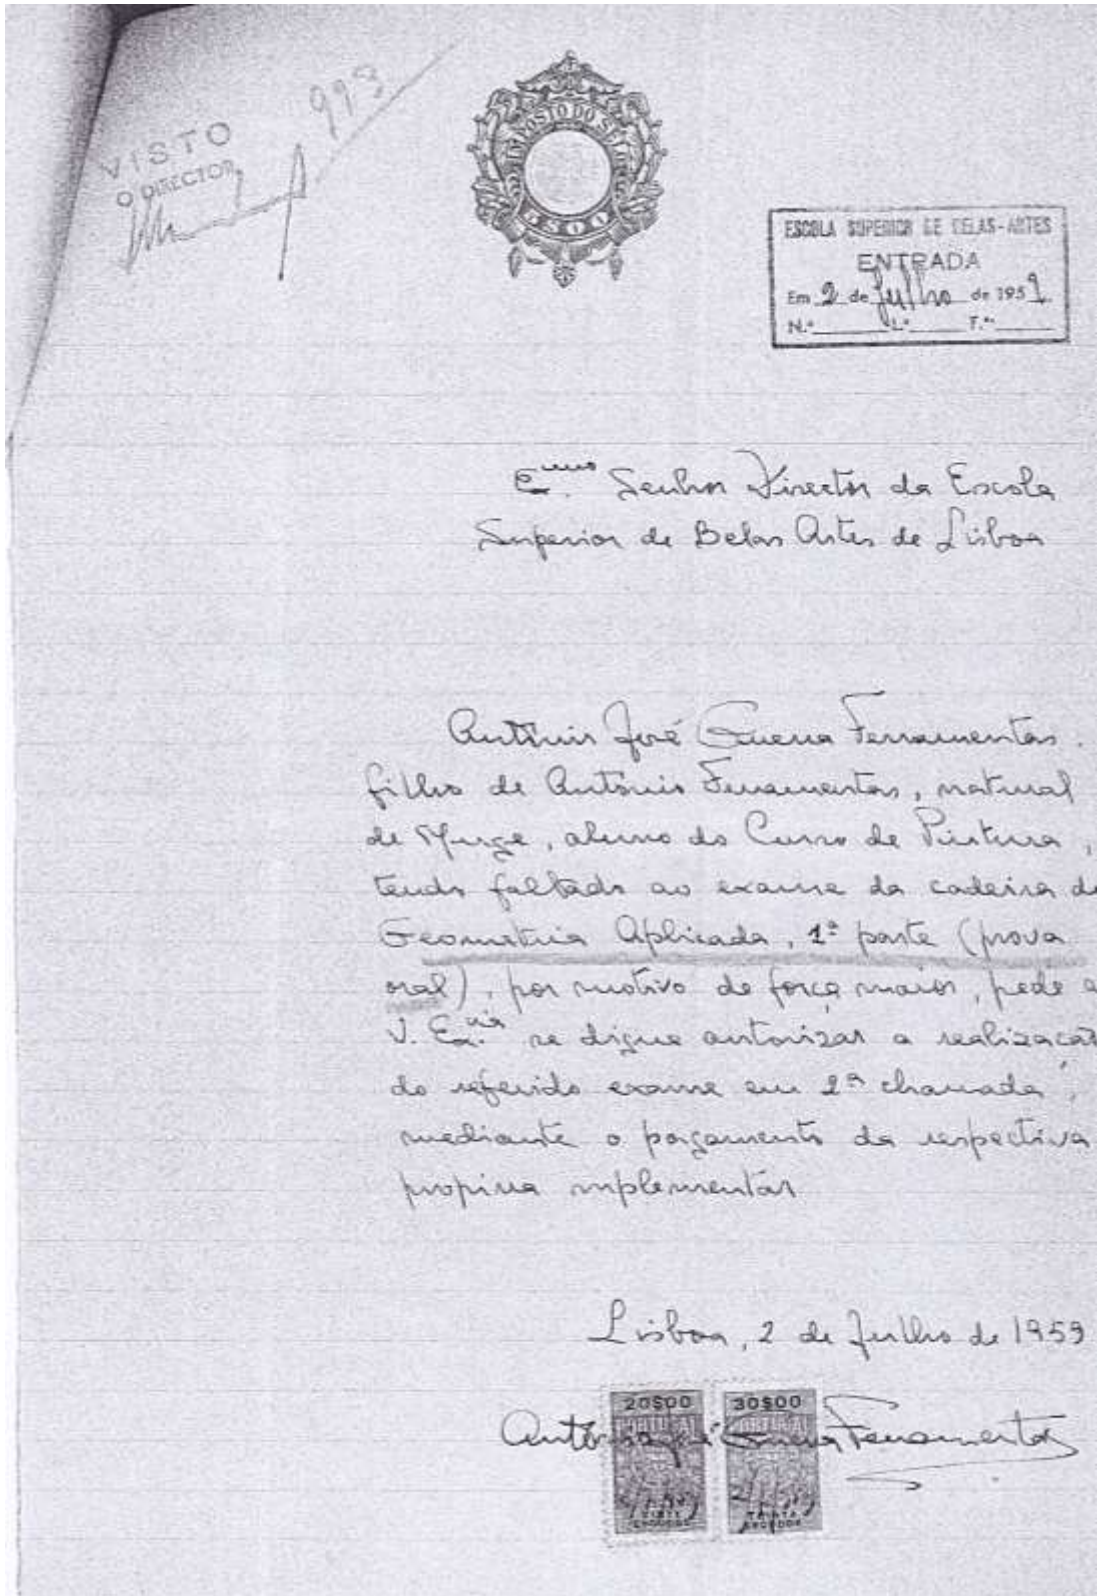 993
VISTO
O DIRECTOR
IMPOSTO DO SELO
ESCOLA SUPERIOR DE BELAS-ARTES
ENTRADA
Em 2 de Julho de 1959
N.º L.º F.ª
E.mo Senhor Director da Escola
Superior de Belas Artes de Lisboa
António José Guerra Ferramentas.
filho de António Ferramentas, natural
de Muge, aluno do Curso de Pintura,
tendo faltado ao exame da cadeira de
Geometria Aplicada, 1ª parte (prova
oral), por motivo de força maior, pede a
V. Ex.ª se digne autorizar a realização
do referido exame em 2ª chamada,
mediante o pagamento da respectiva
propina suplementar
Lisboa, 2 de Julho de 1959
20$00 30$00
António José Guerra Ferramentas
VINTE ESCUDOS TRINTA ESCUDOS